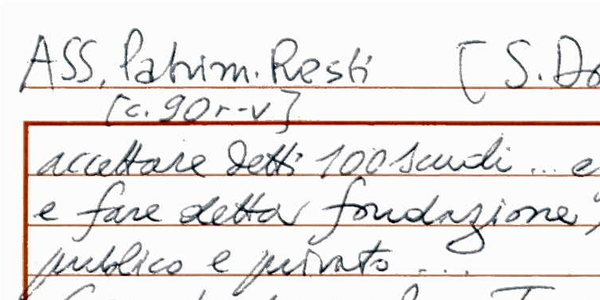 ASS, Patrim. Resti [S. Do
[c. 90r-v]
accettare detti 100 scudi ... e
e fare detta fondazione"
publico e privato ...